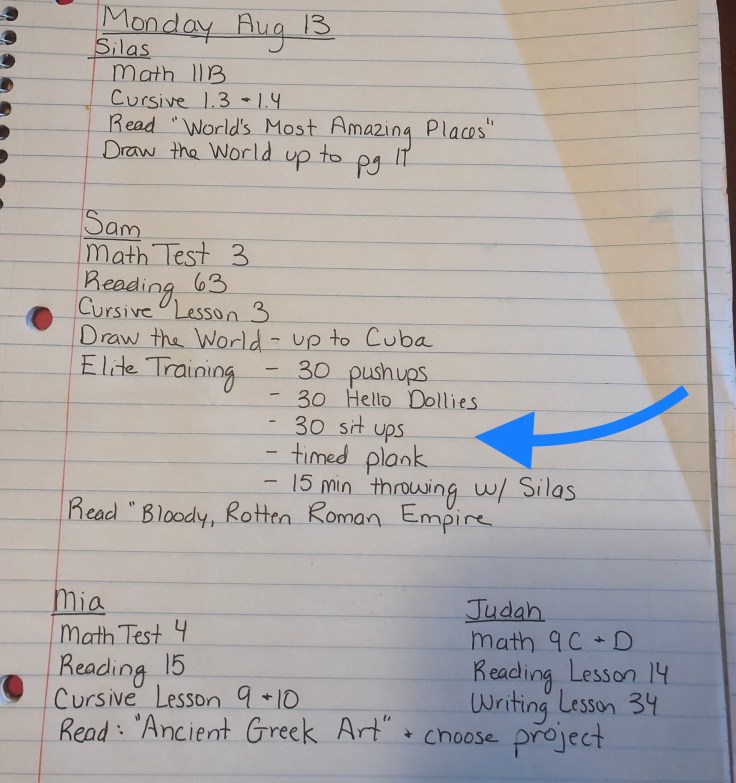 Monday Aug 13
Silas
Math 11B
Cursive 1.3 + 1.4
Read "World's Most Amazing Places"
Draw the World up to pg 17
Sam
Math Test 3
Reading 63
Cursive Lesson 3
Draw the World - up to Cuba
Elite Training - 30 pushups
- 30 Hello Dollies
- 30 sit ups
- timed plank
- 15 min throwing w/ Silas
Read "Bloody, Rotten Roman Empire
Mia
Math Test 4
Reading 15
Cursive Lesson 9 + 10
Read: "Ancient Greek Art" + choose project
Judah
Math 9C + D
Reading Lesson 14
Writing Lesson 34